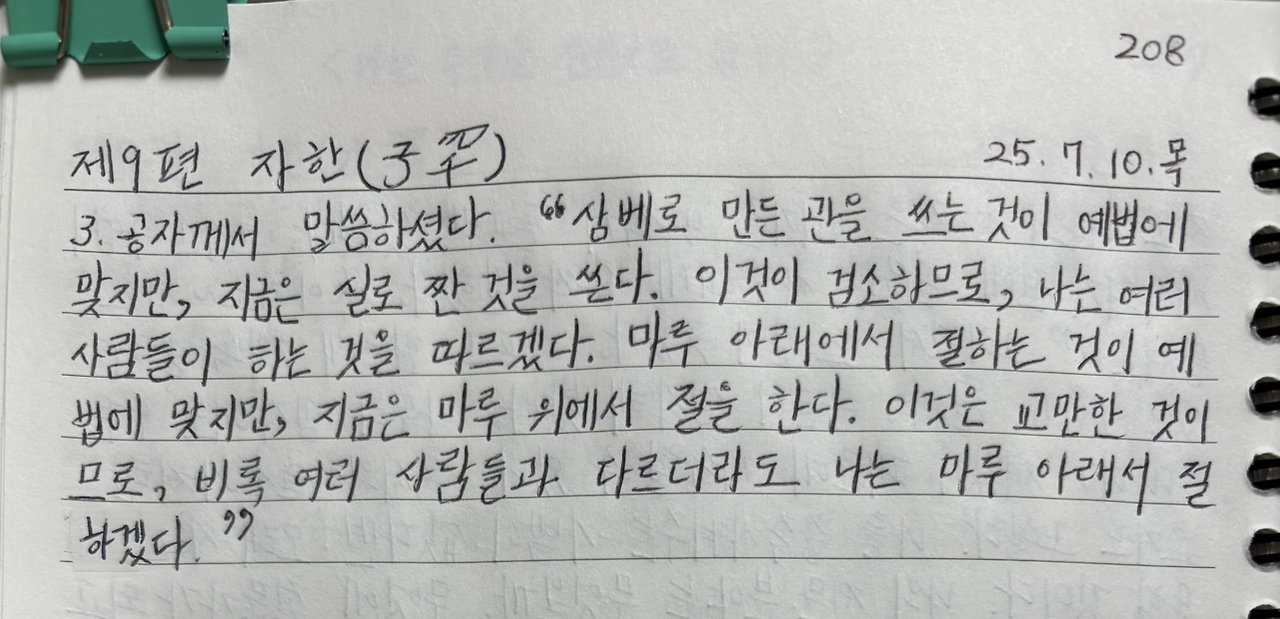 208
제9편 자한(子罕) 25.7.10.목
3. 공자께서 말씀하셨다. "삼베로 만든 관을 쓰는 것이 예법에
맞지만, 지금은 실로 짠 것을 쓴다. 이것이 검소하므로, 나는 여러
사람들이 하는 것을 따르겠다. 마루 아래에서 절하는 것이 예
법에 맞지만, 지금은 마루 위에서 절을 한다. 이것은 교만한 것이
므로, 비록 여러 사람들과 다르더라도 나는 마루 아래서 절
하겠다."